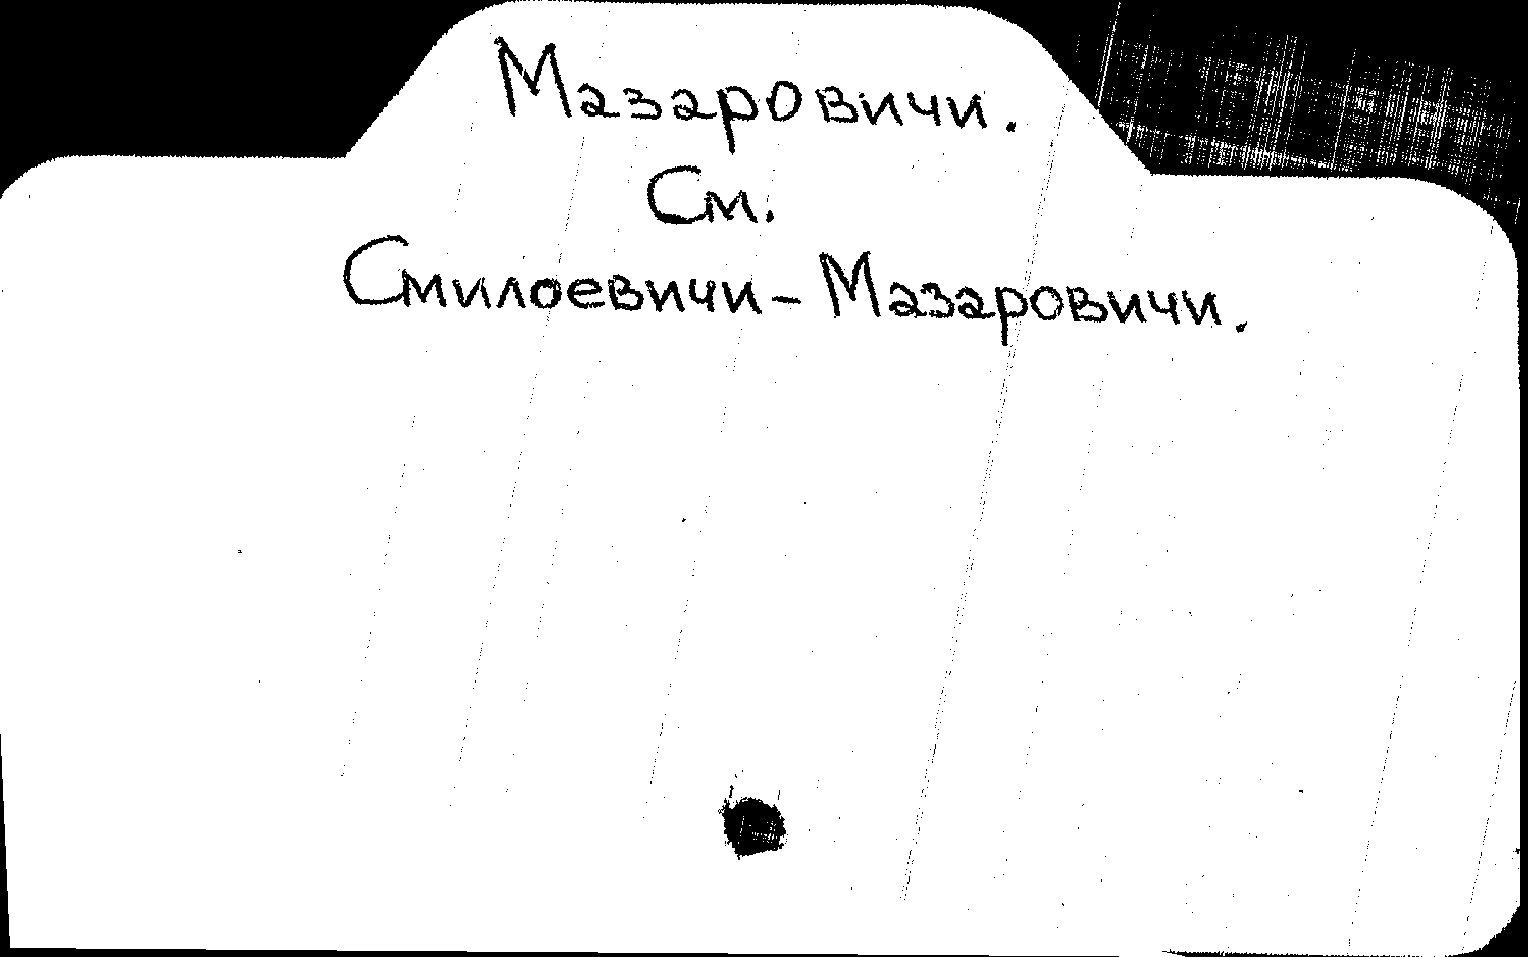 Мазаровичи.
См.
Смилоевичи – Мазаровичи.